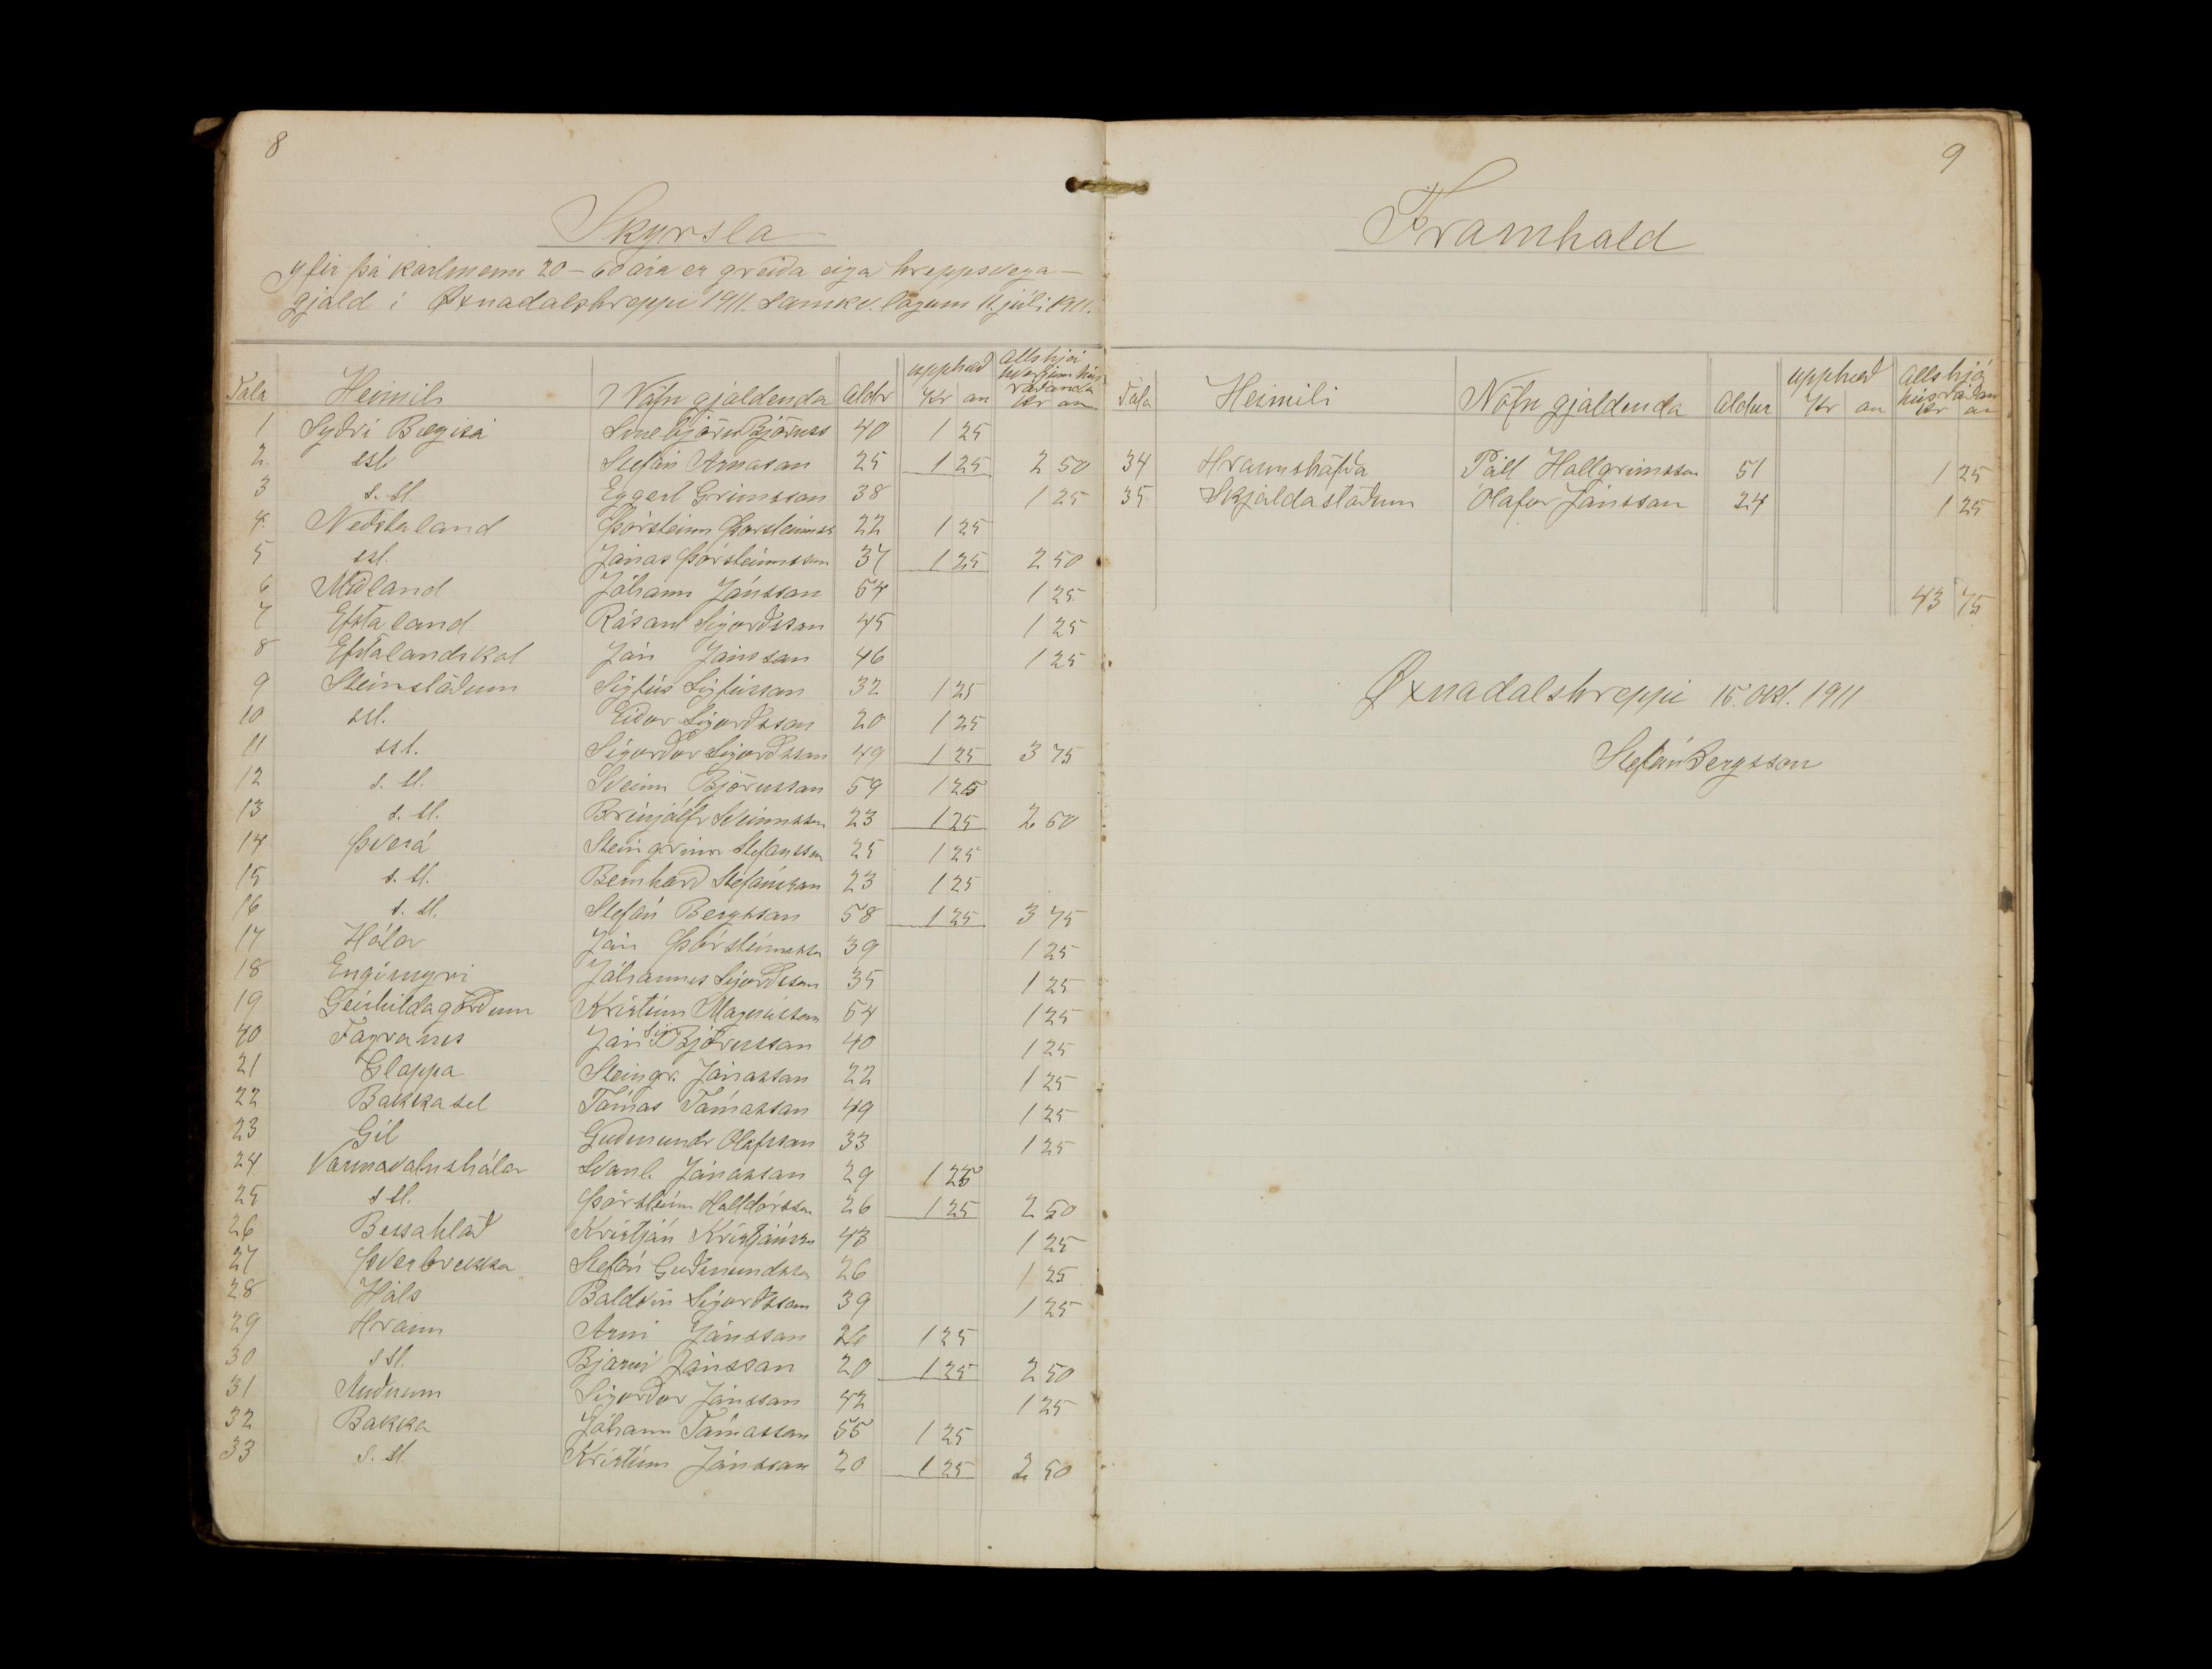 8
Skyrsla
yfir þá karlmenn 20 - 60 ára er greiða eiga hreppsvega-
gjald í Øxnadalshreppi 1911. Samkv. lögum 11. júli 1911.
Tala Heimili Nöfn gjaldenda Aldr upphæð Kr au Alls hjá hverjum hús ráðanda Kr au
1 Syðri Bægisá Sveinbjörn Björnss 40 1 25
2 sst Stefán Arnason 25 1 25 2 50
3 s. st. Eggert Grimsson 38 1 25
4 Neðstaland Þórsteinn Þorsteinnss 22 1 25
5 sst. Jónas Þórsteinnsson 37 1 25 2 50
6 Miðland Jóhann Jónsson 54 1 25
7 Efstaland Rósant Sigorðsson 45 1 25
8 Efstalandskot Jón Jónsson 46 1 25
9 Steinstöðum Sigfús Sigfússon 32 1 25
10 sst. Eiðor Sigorðsson 20 1 25
11 sst. Sigorðor Sigorðsson 49 1 25 3 75
12 s. st. Sveinn Björnsson 59 1 25
13 s. st. Brinjólfr Sveinnsson 23 1 25 2 50
14 Þverá Steingrimr Stefansson 25 1 25
15 s. st. Bernharð Stefánsson 23 1 25
16 s. st. Stefán Bergsson 58 1 25 3 75
17 Hólar Jón Þórsteinnsson 39 1 25
18 Engimyri Jóhannes Sigorðsson 35 1 25
19 Geirhildagörðum Kristinn Magnússon 54 1 25
20 Fagranes Jón Sig Björnsson 40 1 25
21 Gloppa Steingr. Jónasson 22 1 25
22 Bakkasel Tómas Tómasson 49 1 25
23 Gil Guðmundr Olafsson 33 1 25
24 Varmavatnshólar Svanl. Jónasson 29 1 25
25 s st. Þórsteinn Halldórsson 26 1 25 2 50
26 Bessahlöð Kristján Kristjánsson 43 1 25
27 Þverbrekka Stefán Guðmundsson 26 1 25
28 Háls Baldvin Sigorðsson 39 1 25
29 Hraun Arni Jónsson 26 1 25
30 s st. Bjarni Jónsson 20 1 25 2 50
31 Auðnum Sigorðor Jónsson 42 1 25
32 Bakka Jóhann Tómasson 55 1 25
33 s. st. Kristinn Jónsson 20 1 25 2 50
9
Framhald
Tala Heimili Nöfn gjaldenda aldur upphæð Kr au Alls hjá húsráðan Kr au
34 Hraunshöfða Páll Hallgrimsson 51 1 25
35 Skjaldastöðum Olafor Jónsson 24 1 25
43 75
Øxnadalshreppi 15. Okt. 1911
Stefán Bergsson